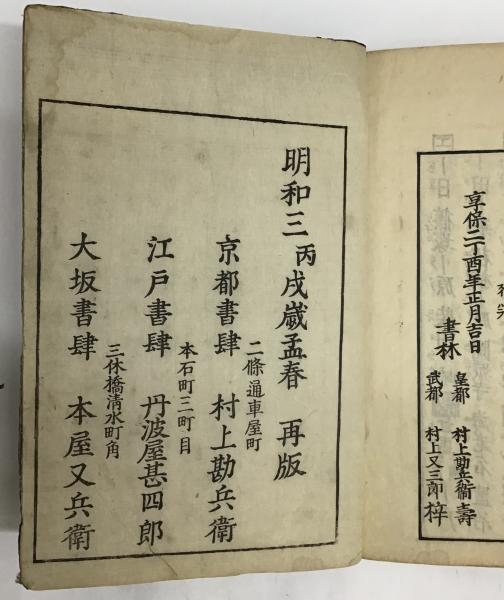 享保二丁酉年正月吉日
書林
皇都 村上勘兵衞壽
武都 村上又三郎梓
明和三丙戌歲孟春 再版
二條通車屋町
京都書肆 村上勘兵衛
本石町三町目
江戸書肆 丹波屋甚四郎
三休橋清水町角
大坂書肆 本屋又兵衛